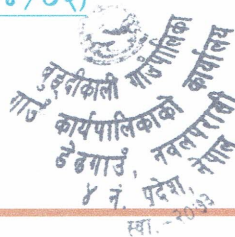 बुङ्दीकाली गाउँपालिका
गाउँ कार्यपालिकाको कार्यालय
डेढगाउँ, नवलपरासी
४ नं. प्रदेश, नेपाल
स्था. - २०७३